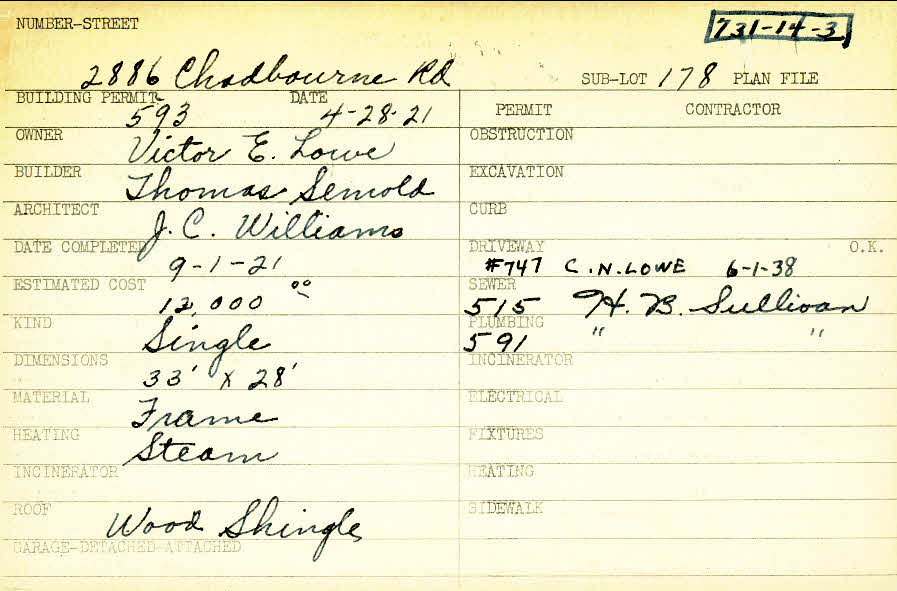 NUMBER-STREET
731-14-3
2886 Chadbourne Rd SUB-LOT 178 PLAN FILE
BUILDING PERMIT DATE PERMIT CONTRACTOR
593 4-28-21
OWNER Victor E. Lowe OBSTRUCTION
BUILDER Thomas Semold EXCAVATION
ARCHITECT J. C. Williams CURB
DATE COMPLETED 9-1-21 DRIVEWAY O.K.
#747 C.N. LOWE 6-1-38
ESTIMATED COST 12,000 00 SEWER
515 H. B. Sullivan
KIND Single PLUMBING
591 " "
DIMENSIONS 33' x 28' INCINERATOR
MATERIAL Frame ELECTRICAL
HEATING Steam FIXTURES
INCINERATOR HEATING
ROOF Wood Shingle SIDEWALK
GARAGE-DETACHED-ATTACHED